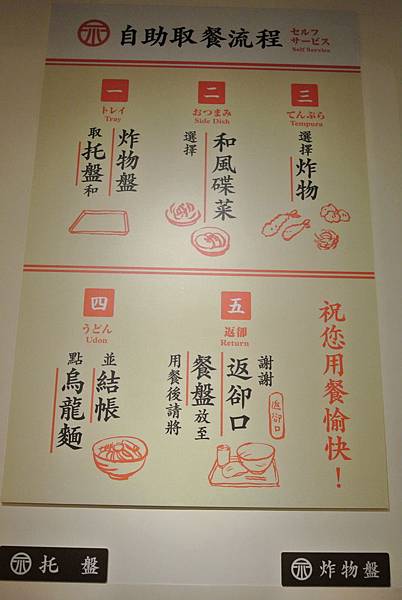 自助取餐流程
セルフ
サービス
Self Service
一
トレイ
Tray
取托盤和
炸物盤
二
おつまみ
Side Dish
選擇
和風碟菜
三
てんぷら
Tempura
選擇炸物
四
うどん
Udon
點烏龍麵
並結帳
五
返却
Return
用餐後請將
餐盤放至
返卻口
謝謝
返却口
祝您用餐愉快！
托盤
炸物盤